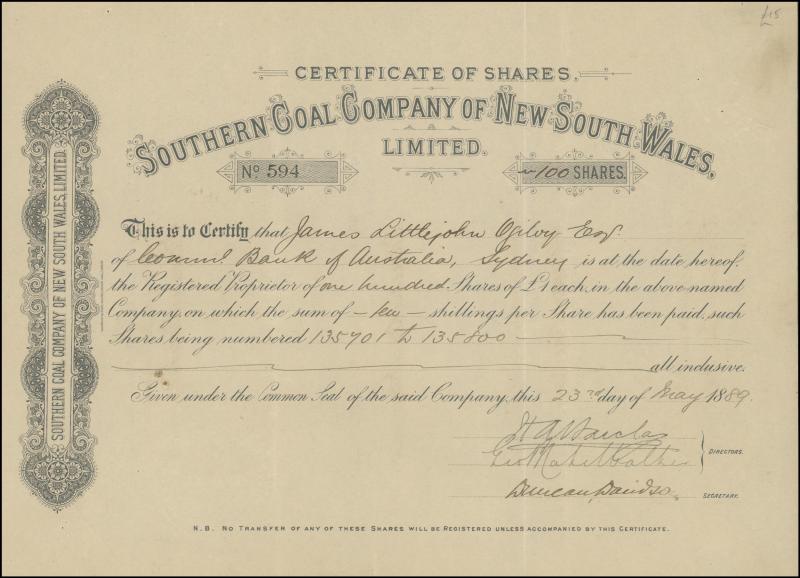 £15
CERTIFICATE OF SHARES.
SOUTHERN COAL COMPANY OF NEW SOUTH WALES,
LIMITED.
No 594
100 SHARES.
This is to Certify that James Littlejohn Ogilvy Esq.
of Comml. Bank of Australia, Sydney is at the date hereof
the Registered Proprietor of one hundred Shares of £1 each, in the above named
Company, on which the sum of — ten — shillings per Share has been paid, such
Shares being numbered 135701 to 135800
all inclusive.
Given under the Common Seal of the said Company, this 23rd day of May 1889.
DIRECTORS.
Duncan
SECRETARY.
N.B. NO TRANSFER OF ANY OF THESE SHARES WILL BE REGISTERED UNLESS ACCOMPANIED BY THIS CERTIFICATE.
SOUTHERN COAL COMPANY OF NEW SOUTH WALES, LIMITED.